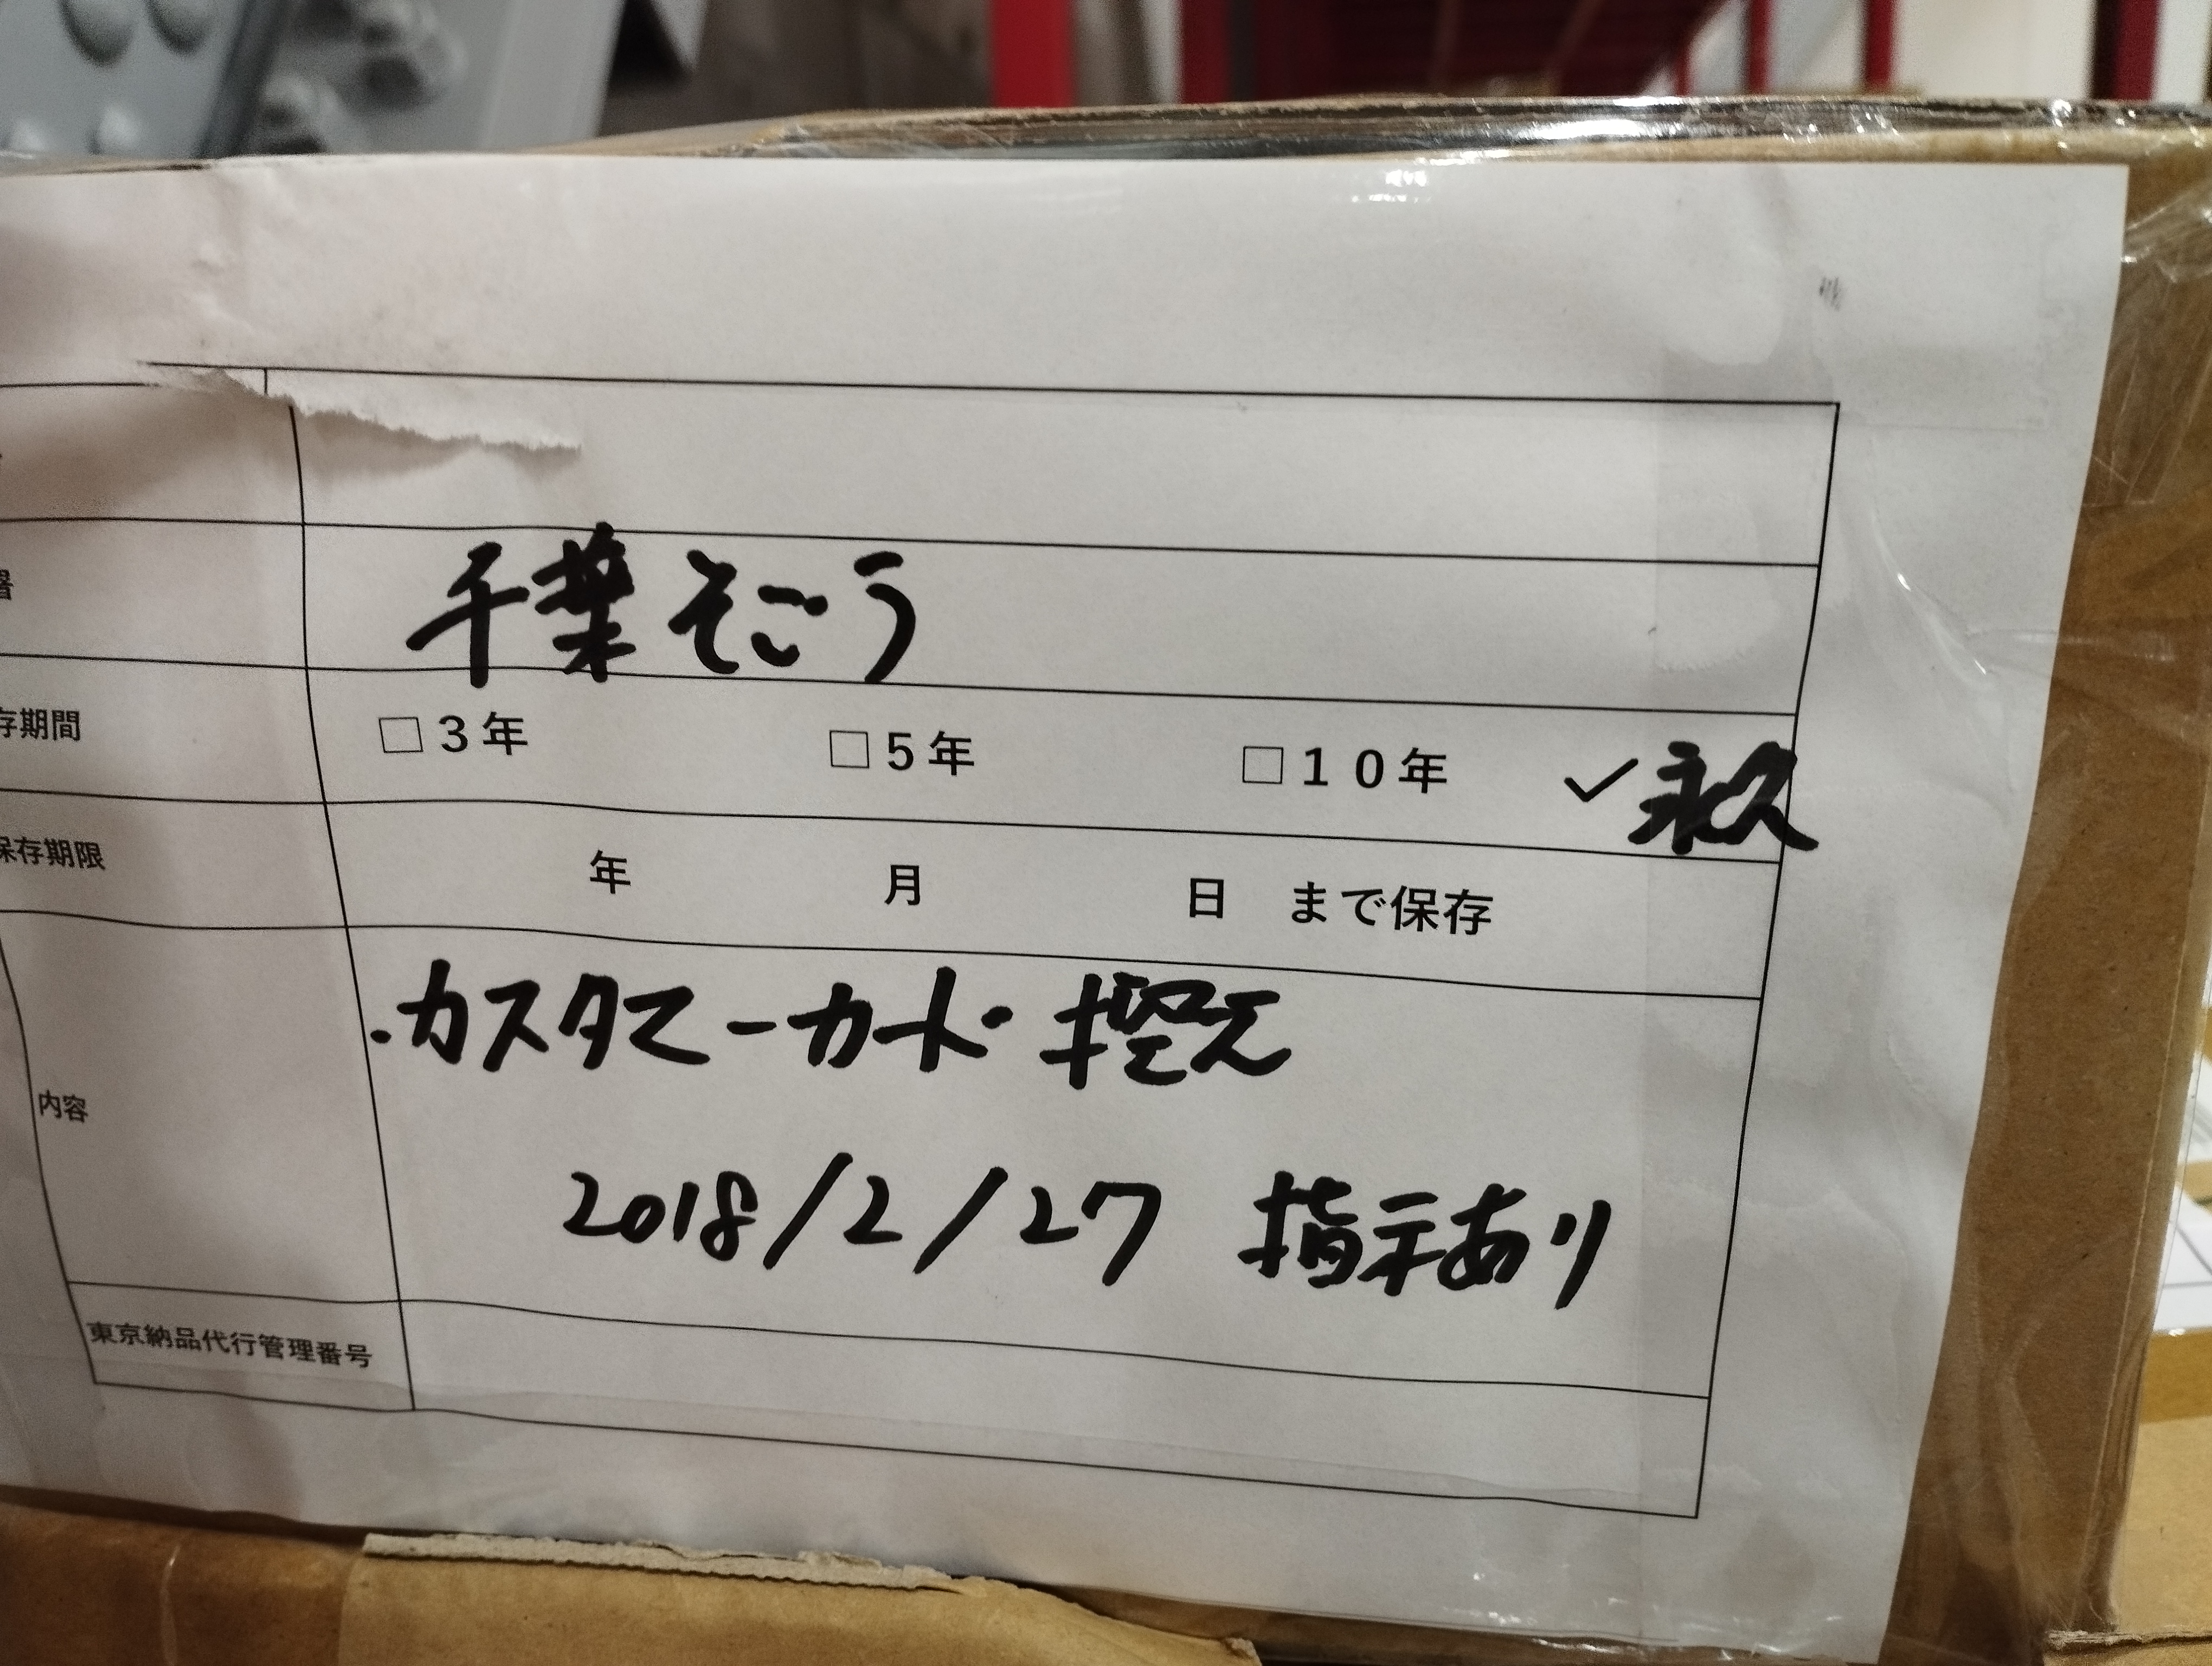 千葉そごう
存期間 □3年 □5年 □10年 ✓永久
保存期限 年 月 日 まで保存
内容
・カスタマーカード控え
2018/2/27 指示あり
東京納品代行管理番号